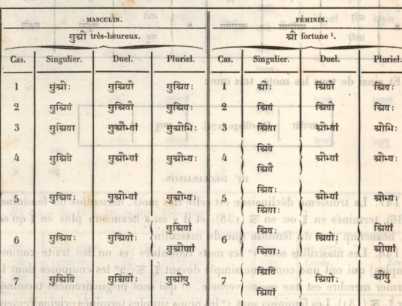 MASCULIN. FÉMININ.
सुश्री très-heureux. श्री fortune ¹.
Cas. Singulier. Duel. Pluriel. Cas. Singulier. Duel. Pluriel.
1 सुश्रीः सुश्रियौ सुश्रियः 1 श्रीः श्रियौ श्रियः
2 सुश्रियं सुश्रियौ सुश्रियः 2 श्रियं श्रियौ श्रियः
3 सुश्रिया सुश्रीभ्यां सुश्रीभिः 3 श्रिया श्रीभ्यां श्रीभिः
4 सुश्रिये सुश्रीभ्यां सुश्रीभ्यः 4 श्रिये श्रियै श्रीभ्यां श्रीभ्यः
5 सुश्रियः सुश्रीभ्यां सुश्रीभ्यः 5 श्रियः श्रियाः श्रीभ्यां श्रीभ्यः
6 सुश्रियः सुश्रियोः सुश्रियां सुश्रीणां 6 श्रियः श्रियाः श्रियोः श्रियां श्रीणां
7 सुश्रियि सुश्रियोः सुश्रीषु 7 श्रियि श्रियां श्रियोः श्रीषु